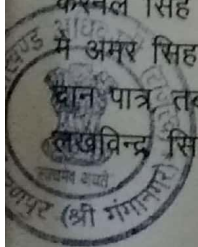 करनैल सिंह
मे अमर सिंह
दान पात्र तक
लखविन्द्र सि
सत्यमेव जयते
(श्री गंगानगर)